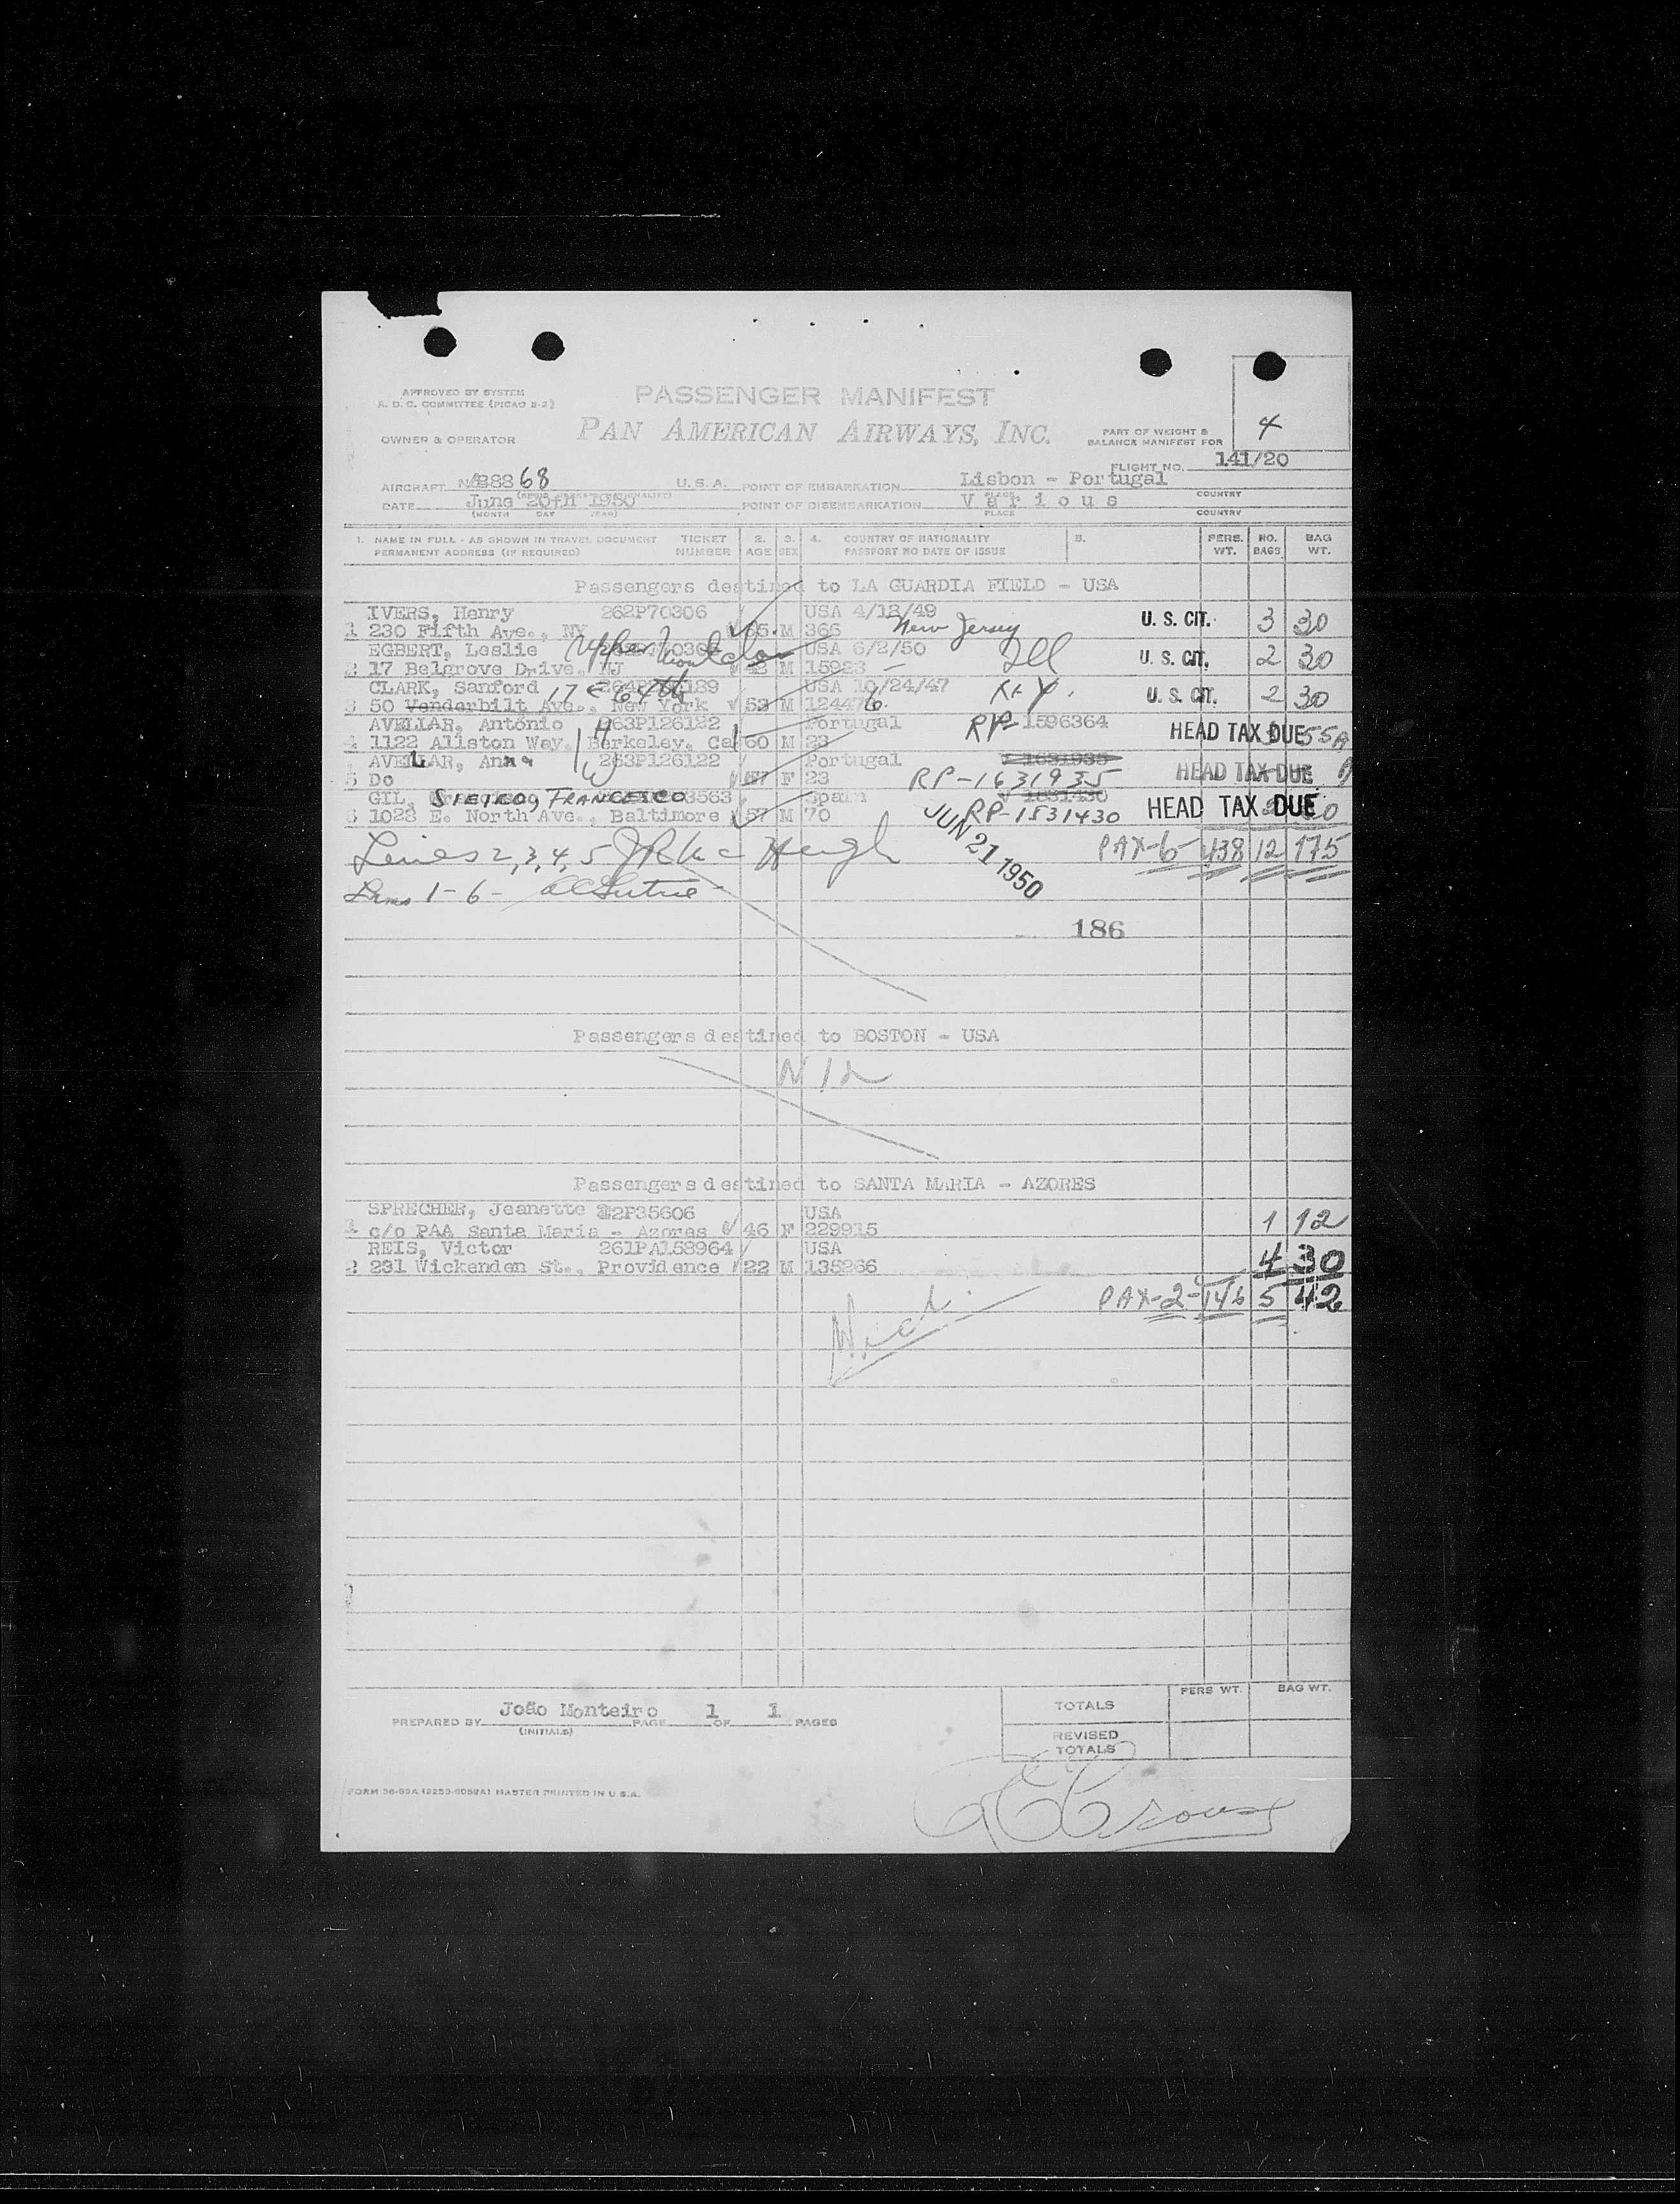 APPROVED BY SYSTEM
A. D. C. COMMITTEE (PICAO S-2)
PASSENGER MANIFEST
OWNER & OPERATOR
PAN AMERICAN AIRWAYS, INC.
PART OF WEIGHT &
BALANCE MANIFEST FOR
4
FLIGHT NO. 141/20
AIRCRAFT 68 U. S. A. POINT OF EMBARKATION Lisbon - Portugal
PLACE COUNTRY
DATE June 20th 1950 POINT OF DISEMBARKATION V a r i o u s
(MONTH DAY YEAR) PLACE COUNTRY
1. NAME IN FULL - AS SHOWN IN TRAVEL DOCUMENT TICKET 2. 3. 4. COUNTRY OF NATIONALITY 5. PERS. NO. BAG
PERMANENT ADDRESS (IF REQUIRED) NUMBER AGE SEX PASSPORT NO DATE OF ISSUE WT. BAGS WT.
Passengers destined to LA GUARDIA FIELD - USA
IVERS, Henry 262P70306 USA 4/12/49
1 230 Fifth Ave., NY 65 M 366 New Jersey U. S. CIT. 3 30
EGBERT, Leslie USA 6/2/50
2 17 Belgrove Drive, NJ 48 M 15923 U. S. CIT. 2 30
CLARK, Sanford 17 E 64th 189 USA 10/24/47
3 50 Venderbilt Ave., New York 53 M 124476 U. S. CIT. 2 30
AVELLAR, António 263P126122 Portugal RP-1596364
4 1122 Allston Way, Berkeley, Cal 60 M 23 HEAD TAX DUE 55
AVELLAR, Anna 263P126122 Portugal 1631935
5 Do 57 F 23 RP-1631935 HEAD TAX DUE
GIL, SIEIRO, FRANCISCO 3563 Spain 1631430
6 1028 E. North Ave., Baltimore 57 M 70 RP-1531430 HEAD TAX DUE
Lines 2, 3, 4, 5 PAX-6 438 12 175
JUN 21 1950
Lines 1-6-
186
Passengers destined to BOSTON - USA
NIL
Passengers destined to SANTA MARIA - AZORES
SPRECHER, Jeanette 2P35606 USA
1 c/o PAA Santa Maria - Azores 46 F 229915 1 12
REIS, Victor 261PA153964 USA
2 231 Wickenden St., Providence 22 M 135266 4 30
PAX-2-146 5 42
PREPARED BY João Monteiro PAGE 1 OF 1 PAGES
(INITIALS)
PERS WT. BAG WT.
TOTALS
REVISED
TOTALS
FORM 36-89A MASTER PRINTED IN U.S.A.